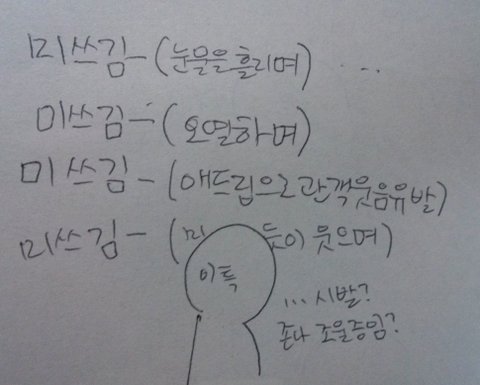 미쓰김-(눈물을 흘리며) ...
미쓰김-(오열하며)
미쓰김-(애드립으로 관객웃음유발)
미쓰김-(미 듯이 웃으며)
이특
...시발?
존나 조울증임?